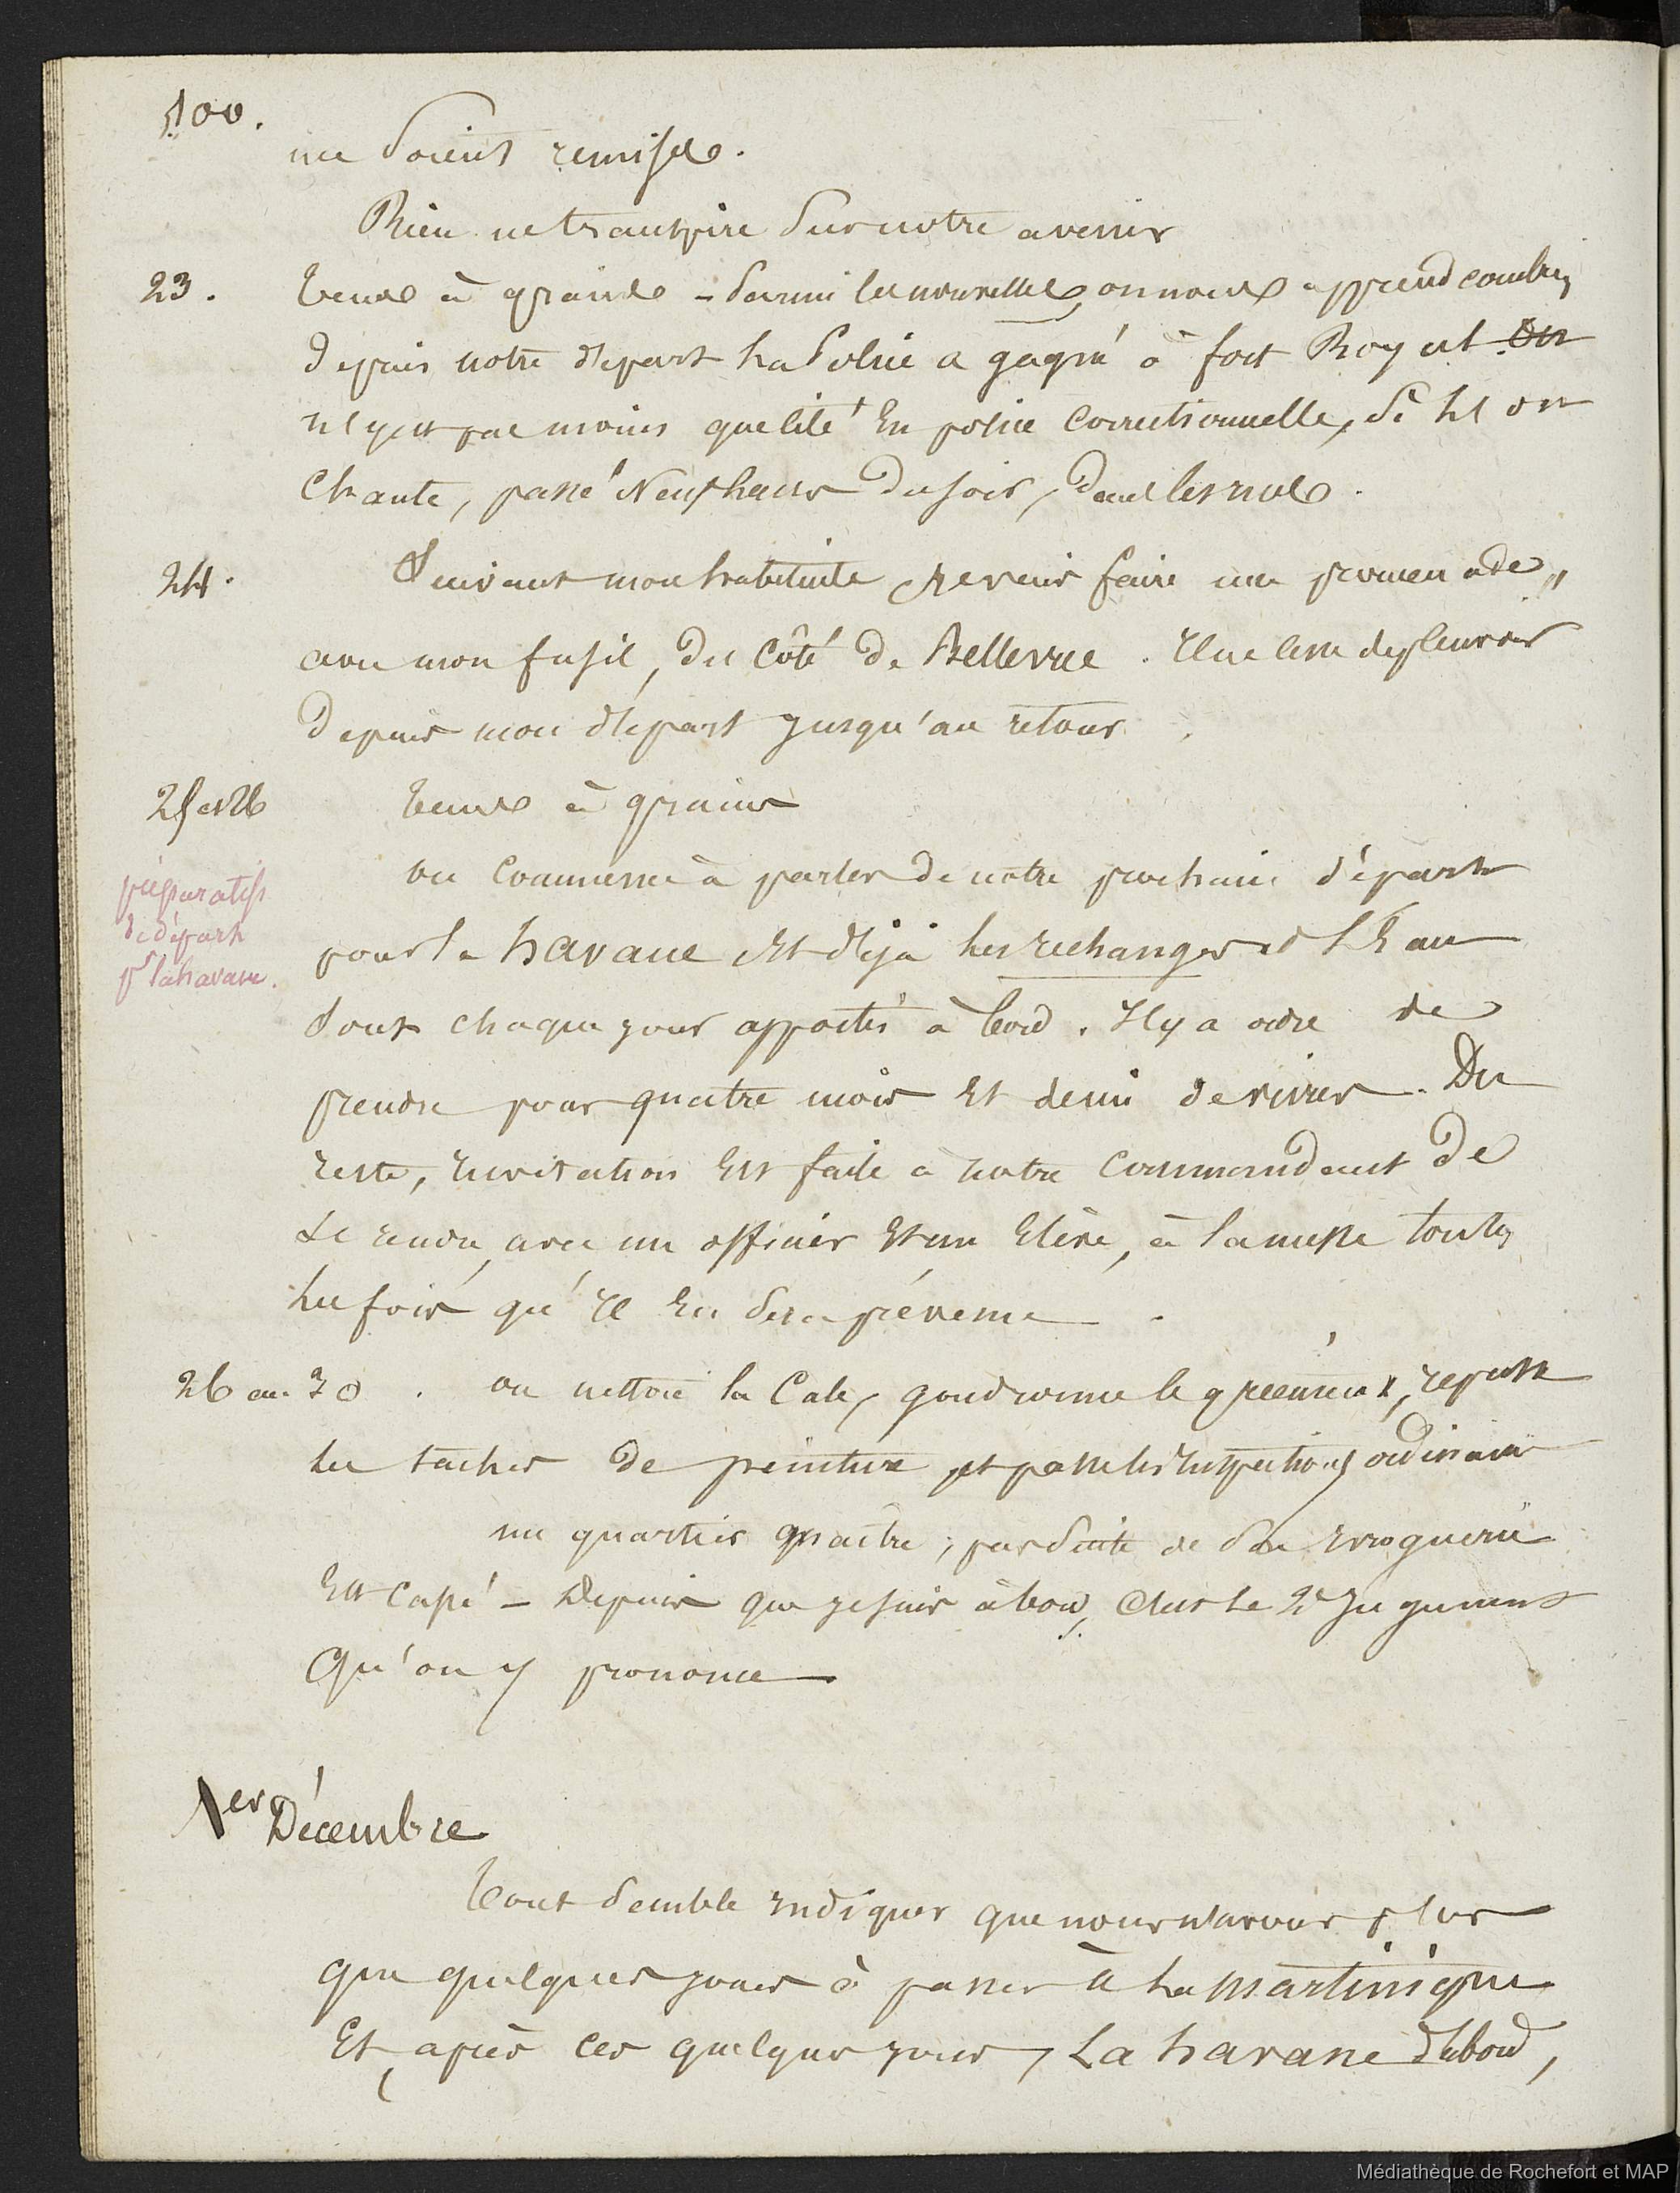 100.
me soient remises.
Rien ne transpire sur notre avenir
23. Temps à grains - Parmi les nouvelles, on nous apprend combien
depuis notre départ la Police a gagné à fort Royal
n'est pas moins que cité en police correctionnelle, si l'on
chante, passé Neuf heures du soir, dans les rues.
24. Suivant mon habitude je vais faire une promenade,,
avec mon fusil, du côté de Bellevue. Il ne cesse de pleuvoir
depuis mon départ jusqu'au retour.
25 et 26 Temps à grains
on commence à parler de notre prochain départ
préparatifs
de départ
pr la havane.
pour la havane et déjà les rechanges et l'Eau
sont chaque jour apportés à bord. Il y a ordre de
prendre pour quatre mois et demi de vivres. Du
reste, invitation est faite à notre commandant de
se rendre, avec un officier et un Elève, à la messe toutes
les fois qu'il en sera prévenu.
26 au 30. on nettoie la Cale, goudronne le gréement, repasse
les taches de peinture et passe les inspections ordinaires
un quartier maître, par suite de son ivrognerie
est cassé - Depuis que je suis à bord, c'est le 2e Jugement
Qu'on y prononce
1er Décembre
Tout semble indiquer que nous n'avons plus
que quelques jours à passer à la Martinique
Et, après ces quelques jours, La havane d'abord,
Médiathèque de Rochefort et MAP